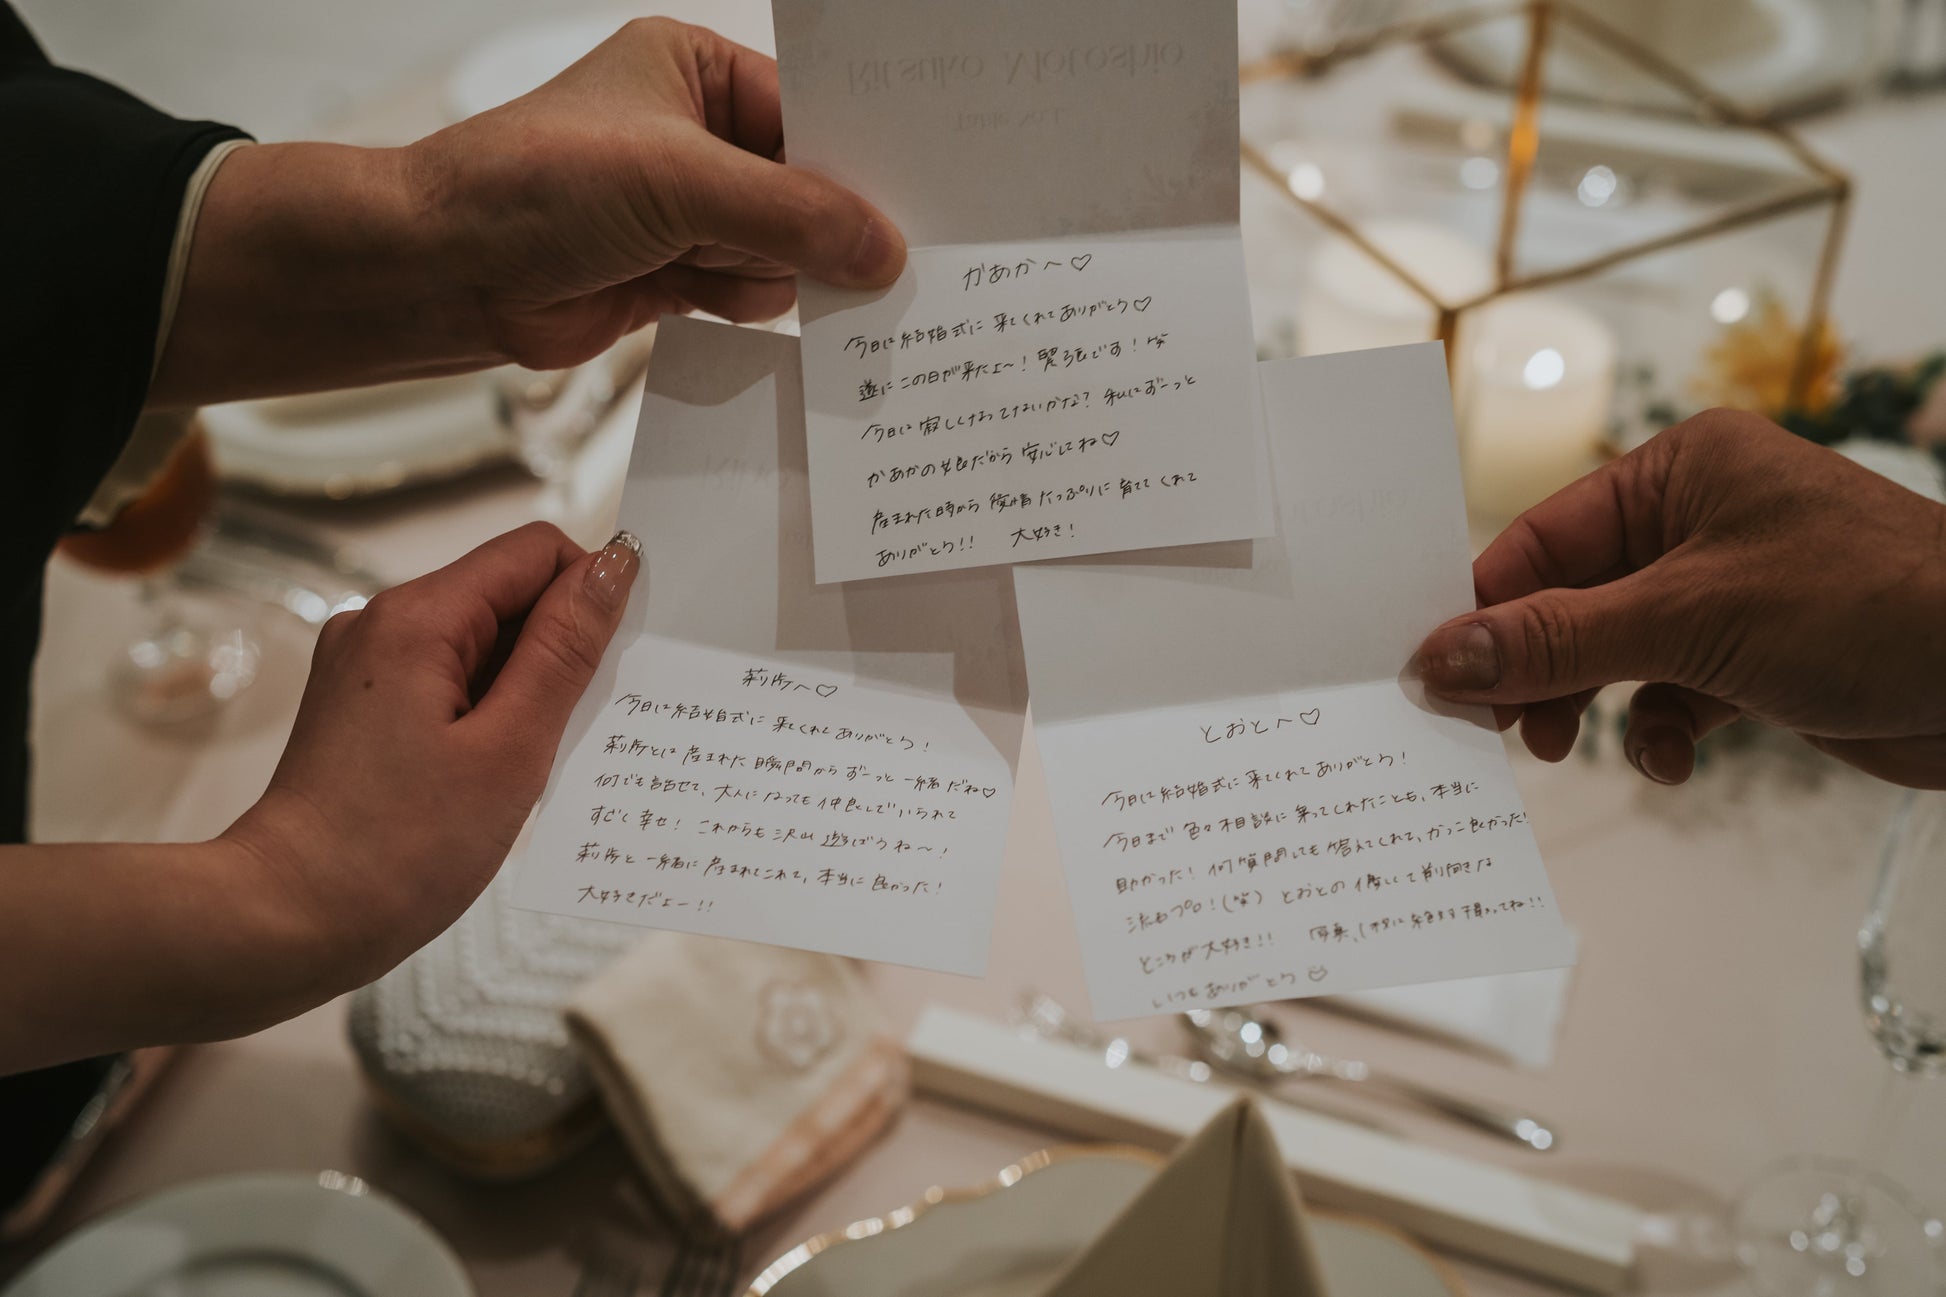 Ritsuko Motoshio
Table No.1
かあかへ♡
今日は結婚式に来てくれてありがとう♡
遂にこの日が来たよ〜!緊張です!笑
今日は寂しくなってないかな?私はずーっと
かあかの娘だから安心してね♡
産まれた時から愛情たっぷりに育ててくれて
ありがとう!! 大好き!
莉所へ♡
今日は結婚式に来てくれてありがとう!
莉所とは産まれた瞬間からずーっと一緒だね♡
何でも話せて、大人になっても仲良しでいられて
すごく幸せ!これからも沢山遊ぼうね〜!
莉所と一緒に産まれてこれて、本当に良かった!
大好きだよー!!
とおとへ♡
今日は結婚式に来てくれてありがとう!
今日まで色々相談に乗ってくれたことも、本当に
助かった!何質問しても答えてくれて、かっこ良かった!
流石プロ!(笑)とおとの優しくて前向きな
ところが大好き!! 写真、しっかり絶対撮ってね!!
いつもありがとう♡